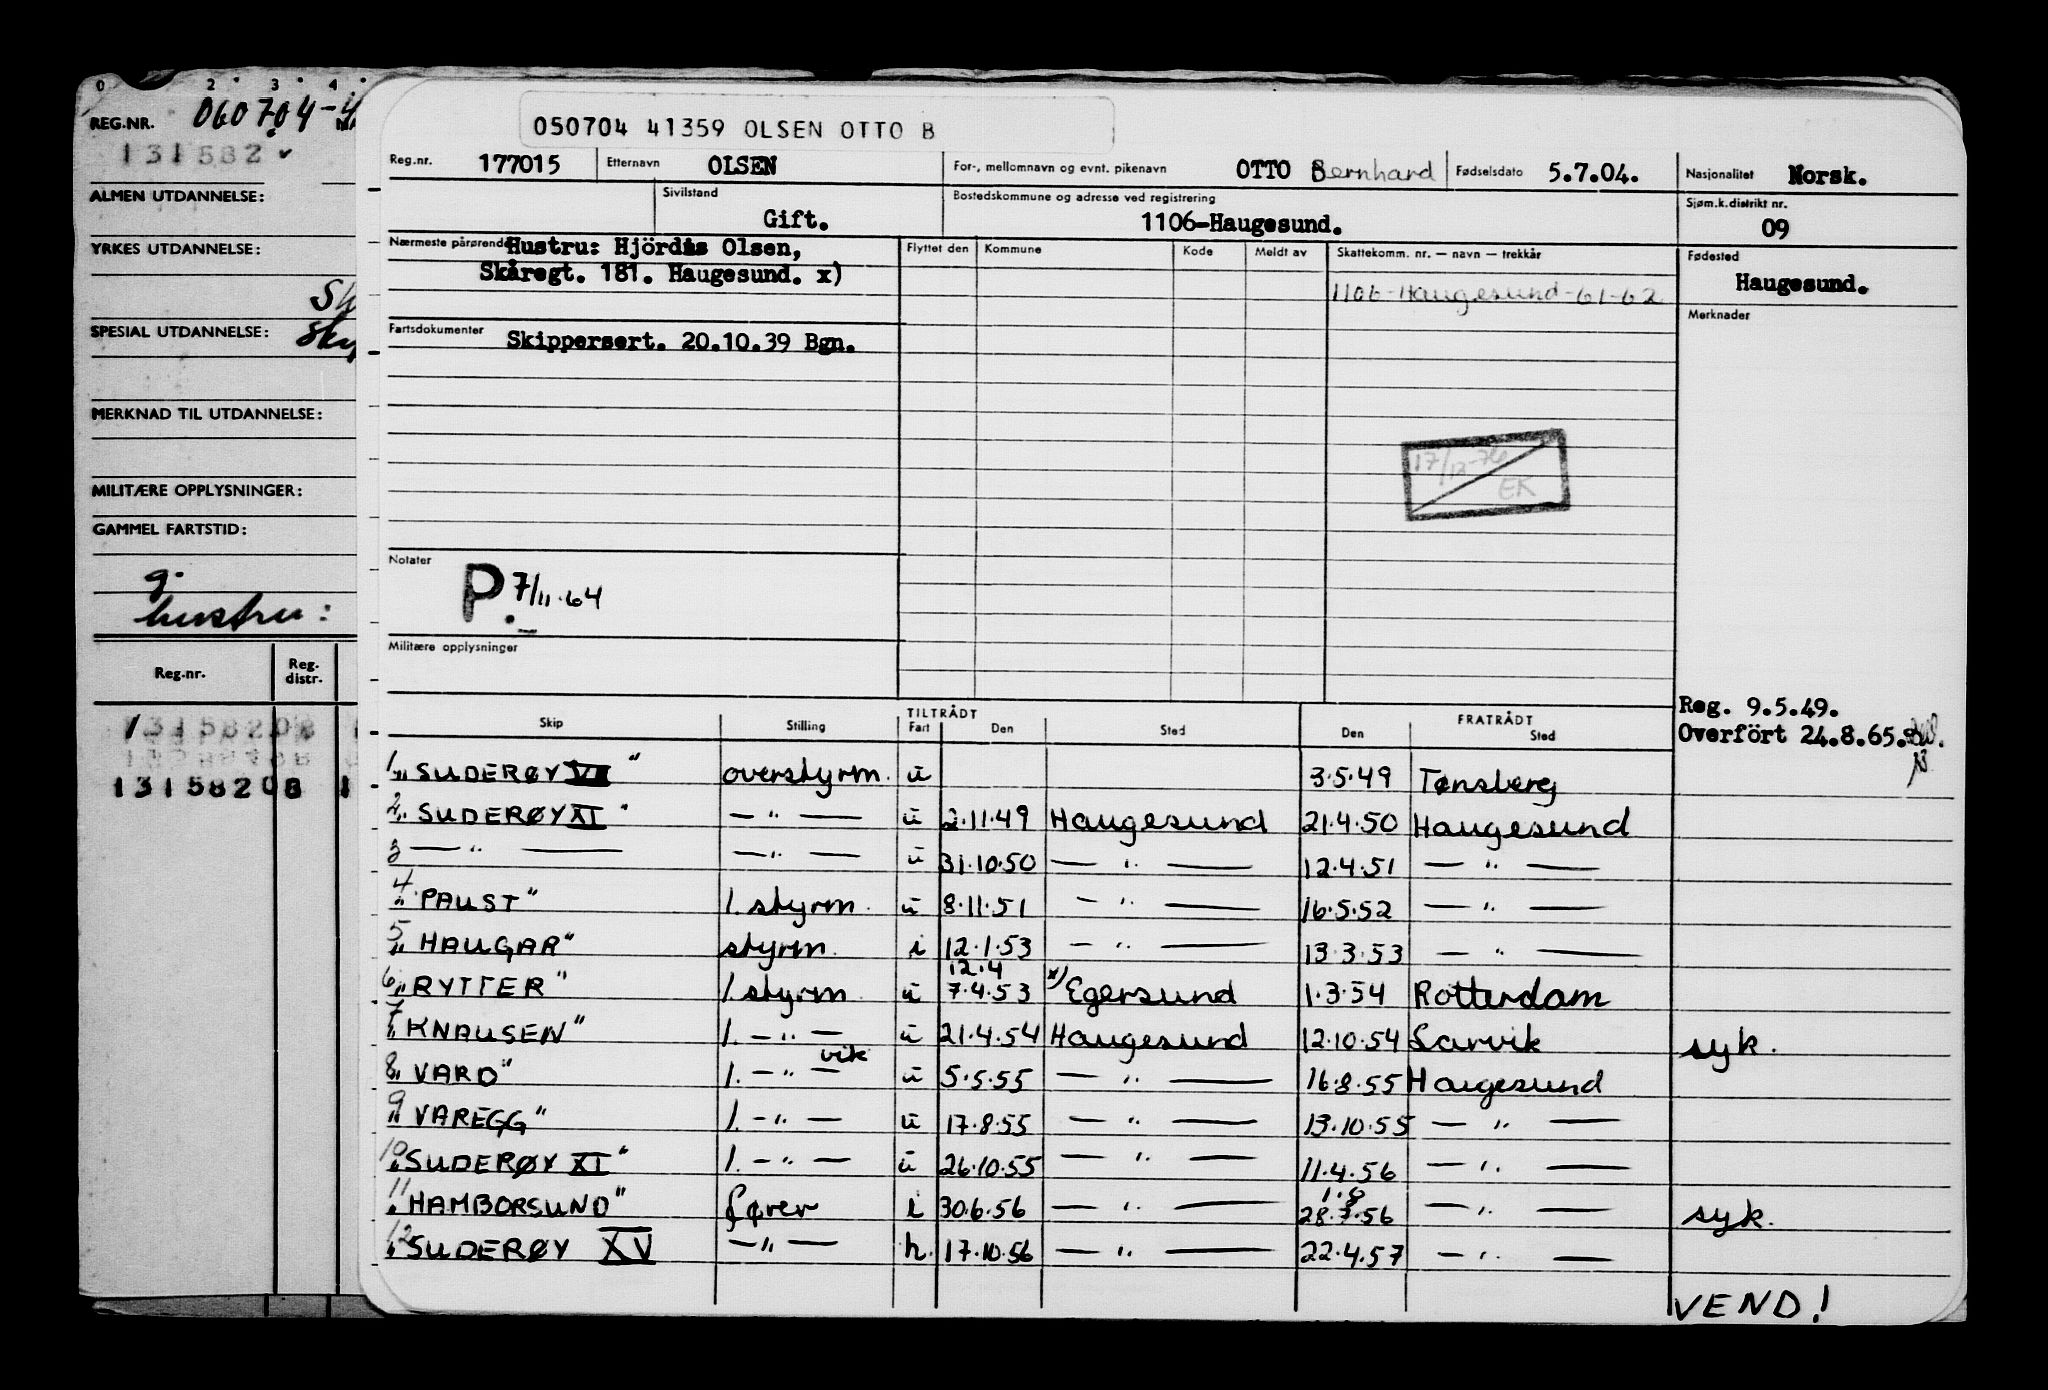 0 2 3 4
REG.NR. 060704-4
131582
ALMEN UTDANNELSE:
YRKES UTDANNELSE:
SPESIAL UTDANNELSE:
MERKNAD TIL UTDANNELSE:
MILITÆRE OPPLYSNINGER:
GAMMEL FARTSTID:
g.
hustru:
Reg.nr. Reg. distr.
13158208
13158208 1
050704 41359 OLSEN OTTO B
Reg.nr. 177015 Etternavn OLSEN For-, mellomnavn og evnt. pikenavn OTTO Bernhard Fødselsdato 5.7.04. Nasjonalitet Norsk.
Sivilstand Gift. Bostedskommune og adresse ved registrering 1106-Haugesund. Sjøm.k.distrikt nr. 09
Nærmeste pårørende Hustru: Hjördis Olsen, Flyttet den Kommune Kode Meldt av Skattekomm. nr. — navn — trekkår Fødested
Skåregt. 181. Haugesund. x) 1106-Haugesund-61-62 Haugesund.
Merknader
Fartsdokumenter Skippersert. 20.10.39 Bgn.
17/12-76
EK
Notater P. 7/11.64
Militære opplysninger
Reg. 9.5.49.
Overført 24.8.65.
TILTRÅDT FRATRÅDT
Skip Stilling Fart Den Sted Den Sted
1 "SUDERØY VII" overstyrm. u 3.5.49 Tønsberg
2 "SUDERØY XI" — " — u 2.11.49 Haugesund 21.4.50 Haugesund
3 — " — — " — u 31.10.50 — " — 12.4.51 — " —
4 "PAUST" 1. styrm. u 8.11.51 — " — 16.5.52 — " —
5 "HAUGAR" styrm. i 12.1.53 — " — 13.3.53 — " —
12.4
6 "RYTTER" 1. styrm. u 7.4.53 x) Egersund 1.3.54 Rotterdam
7 "KNAUSEN" 1. — " — u 21.4.54 Haugesund 12.10.54 Larvik syk.
vik
8 "VARD" 1. — " — u 5.5.55 — " — 16.8.55 Haugesund
9 "VAREGG" 1. — " — u 17.8.55 — " — 13.10.55 — " —
10 "SUDERØY XI" 1. — " — u 26.10.55 — " — 11.4.56 — " —
1.8
11 "HAMBORSUND" fører i 30.6.56 — " — 28.7.56 — " — syk.
12 "SUDERØY XV — " — h. 17.10.56 — " — 22.4.57 — " —
VEND!